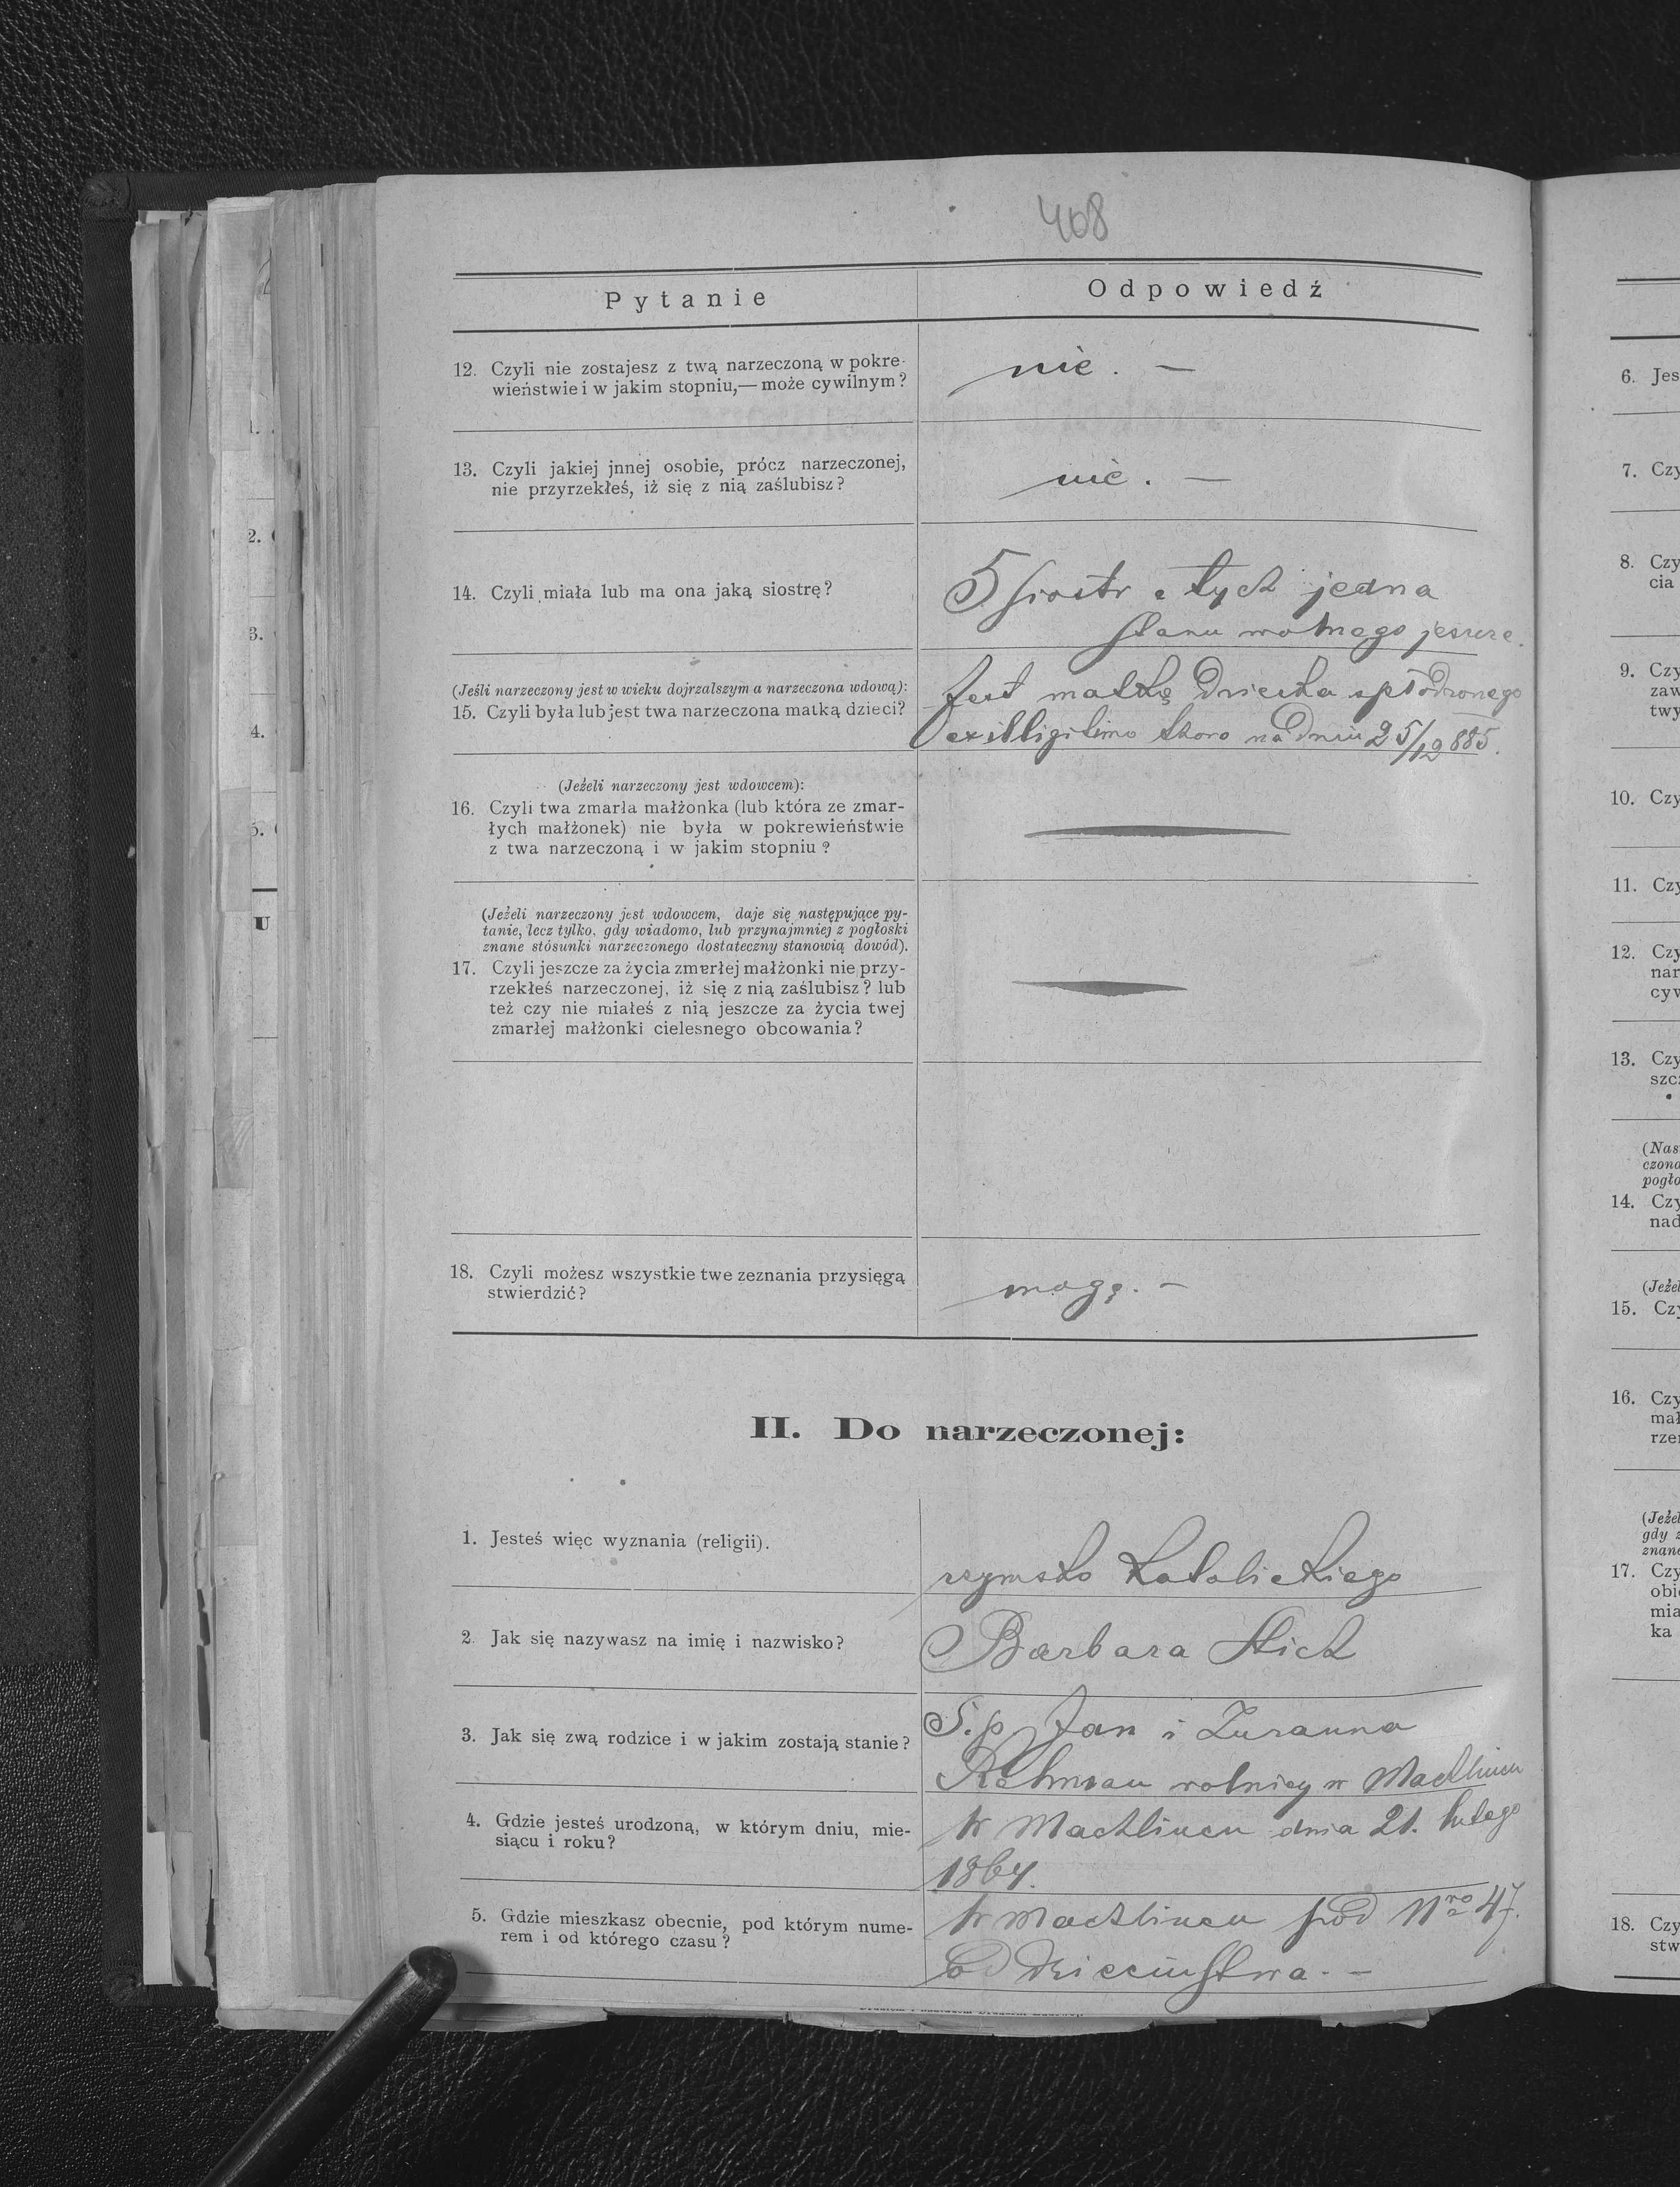 408
Pytanie
Odpowiedź
12. Czyli nie zostajesz z twą narzeczoną w pokre-
wieństwie i w jakim stopniu,— może cywilnym?
nie. —
13. Czyli jakiej jnnej osobie, prócz narzeczonej,
nie przyrzekłeś, iż się z nią zaślubisz?
nie. —
14. Czyli miała lub ma ona jaką siostrę?
5 siostr z tych jedna
stanu wolnego jeszcze.
(Jeśli narzeczony jest w wieku dojrzalszym a narzeczona wdową):
15. Czyli była lub jest twa narzeczona matką dzieci?
Jest matką dziecka spłodzonego
ex illigitimo thoro na dniu 25/12 885.
(Jeżeli narzeczony jest wdowcem):
16. Czyli twa zmarła małżonka (lub która ze zmar-
łych małżonek) nie była w pokrewieństwie
z twa narzeczoną i w jakim stopniu?
(Jeżeli narzeczony jest wdowcem, daje się następujące py-
tanie, lecz tylko, gdy wiadomo, lub przynajmniej z pogłoski
znane stósunki narzeczonego dostateczny stanowią dowód).
17. Czyli jeszcze za życia zmerłej małżonki nie przy-
rzekłeś narzeczonej, iż się z nią zaślubisz? lub
też czy nie miałeś z nią jeszcze za życia twej
zmarłej małżonki cielesnego obcowania?
18. Czyli możesz wszystkie twe zeznania przysięgą
stwierdzić?
mogę. —
II. Do narzeczonej:
1. Jesteś więc wyznania (religii).
rzymsko katolickiego
2. Jak się nazywasz na imię i nazwisko?
Barbara Hick
3. Jak się zwą rodzice i w jakim zostają stanie?
Ś.p. Jan i Zuzanna
rolnicy w Machlincu
4. Gdzie jesteś urodzoną, w którym dniu, mie-
siącu i roku?
w Machlincu dnia 21. lutego
1864.
5. Gdzie mieszkasz obecnie, pod którym nume-
rem i od którego czasu?
w Machlincu pod Nro 47.
od dzieciństwa. —
6. Jes
7. Czy
8. Czy
cia
9. Czy
zaw
twy
10. Czy
11. Czy
12. Czy
nar
cyw
13. Czy
szcz
(Nas
czona
pogło
14. Czy
nad
(Jeżel
15. Czy
16. Czy
mał
rzer
(Jeżel
gdy z
znane
17. Czy
obie
mia
ka
18. Czy
stw